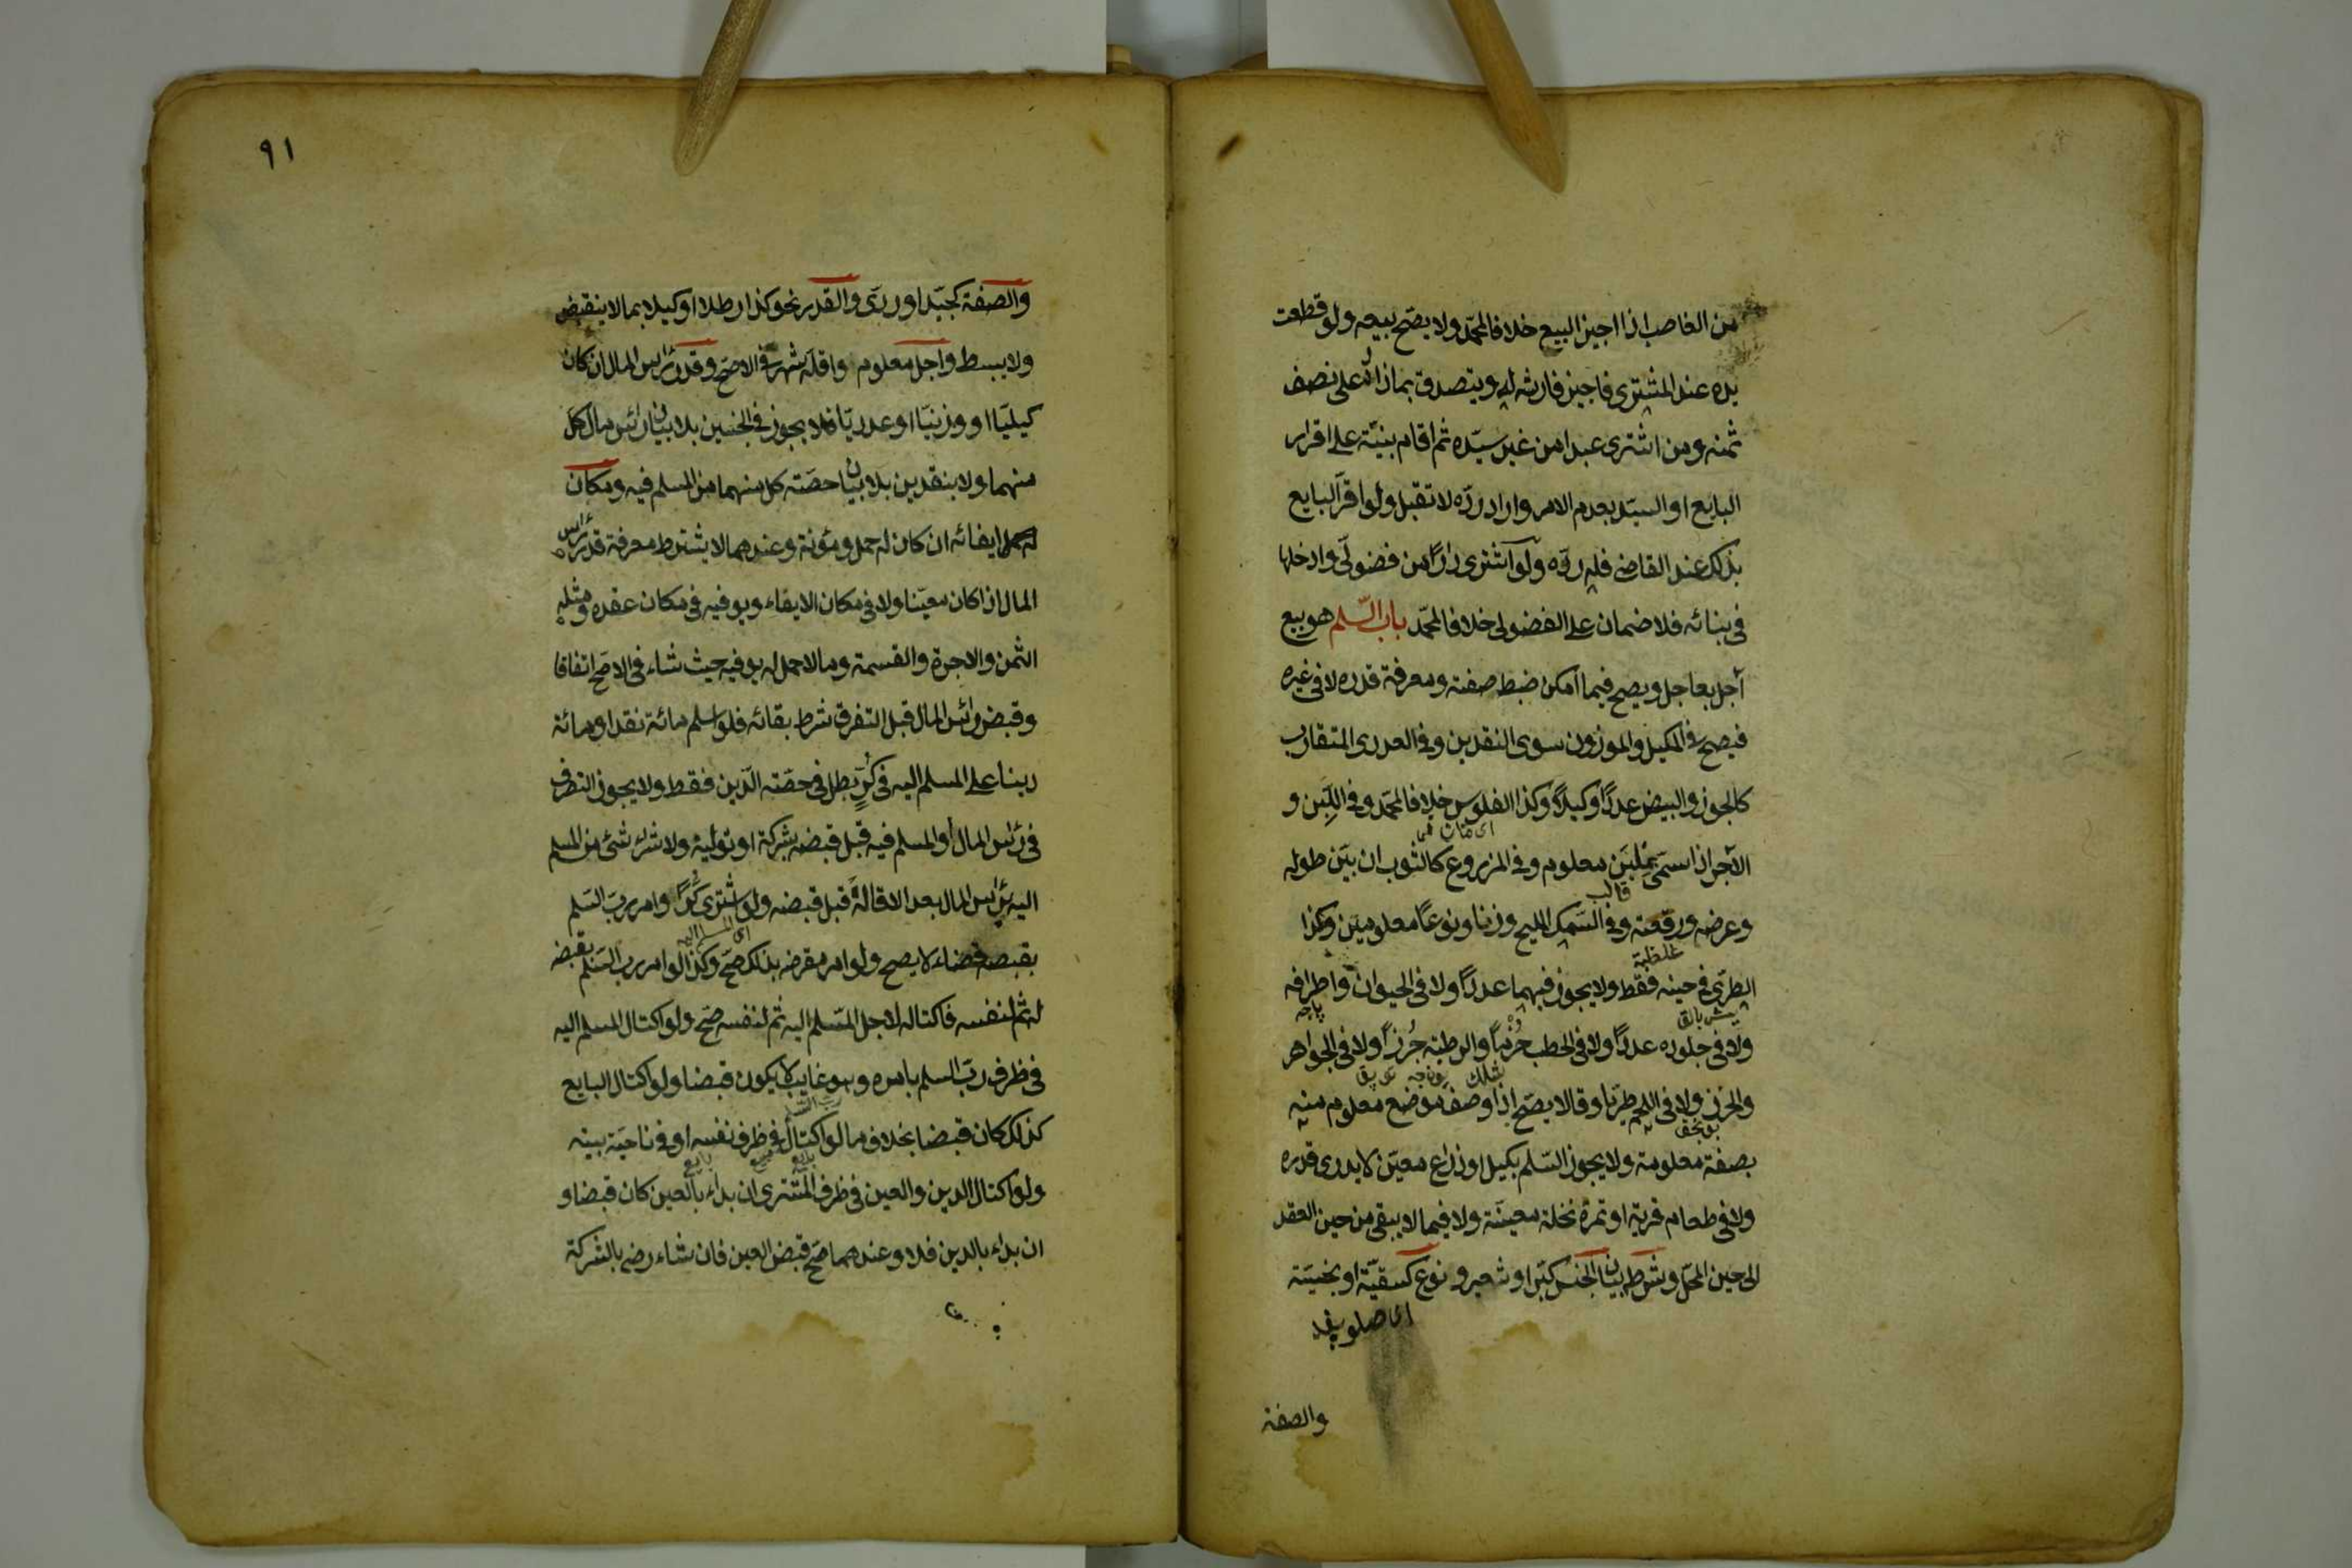 من الغاصب اذا اجيز البيع خلافا لمحمد ولا يصح بيعه ولو قطعت
يده عند المشترى فاجيز فارشه له ويتصدق بما زاد على نصف
ثمنه ومن اشترى عبدا من غير سيّده ثم اقام بنيّة على اقرار
البايع او السيّد بعدم الامر واراد ردّه لا تقبل ولو اقرّ البايع
بذلك عند القاضى فله ردّه ولو اشترى دارًا من فضولى وادخلها
فى بنائه فلا ضمان على الفضولى خلافا لمحمّد باب السّلم هو بيع
آجل بعاجل ويصح فيما امكن ضبط صفته ومعرفة قدره لا فى غيره
فيصح فى المكيل والموزون سوى النقدين وفى العددى المتقارب
كالجوز والبيض عددًا وكيلاً وكذا الفلوس خلافا لمحمّد وفى اللَّبِن و
الآجر اذا سمّى مِلبَن معلوم وفى المزروع كالثوب ان بيّن طوله
قالب
وعرضه ورقعته وفى السّمك المليح وزنا ونوعًا معلومين وكذا
الطرّى فى حينه فقط ولا يجوز فيهما عددًا ولا فى الحيوان واطرافه
ولا فى جلوده عددًا ولا فى الحطب حُزَمًا والرطبة جُرزًا ولا فى الجواهر
والخرز ولا فى اللحم طريّا وقالا يصّح اذا وصف موضع معلوم منه
بصفة معلومة ولا يجوز السّلم بكيل او ذراع معيّن لا يدرى قدره
ولا فى طعام قرية او تمرة نخلة معينّة ولا فيما لا يبقى من حين العقد
الى حين المحلّ وشرطه بيان الجنس كبرّ او شعير و نوع كسقيّة او بخسيّة
والصفة
٩١
والصفة كجيّد او ردىّ والقدر نحو كذا رطلا او كيلا بما لا ينقبض
ولا يبسط واجل معلوم واقلّه شهر فى الاصحّ وقدر رأس المال ان كان
كيليّا او وزنيّا او عدديّا فلا يجوز فى الجنسين بلا بيان رأس مال كل
منهما ولا بنقدين بلا بيان حصّته كل منهما من المسلم فيه ومكان
ايفائه ان كان له حمل ومؤنة وعندهما لا يشترط معرفة قدر رأس
المال اذا كان معيّنا ولا فى مكان الايفاء ويوفيه فى مكان عقده ومثله
الثمن والاجرة والقسمة وما لا حمل له يوفيه حيث شاء فى الاصح اتفاقا
وقبض رأس المال قبل التفرق شرط بقائه فلو اسلم مائة نقدا ومائة
دينا على المسلم اليه فى كُرٍّ بطل فى حصّته الدّين فقط ولا يجوز التصرف
فى رأس المال او المسلم فيه قبل قبضه بشركة او تولية ولا شراء شئ من المسلم
اليه برأس المال بعد الاقالة قبل قبضه ولو اشترى كرًّا وامر ربّ السّلم
اى المسلم اليه
بقبضه قضاء لا يصح ولو امر مقرضه بذلك صّح وكذا لو امر رب السّلم بقبضه
له ثم لنفسه فاكتاله لاجل المسّلم اليه ثم لنفسه صّح ولو اكتال المسلم اليه
فى ظرف ربّ السلم بامره وهو غايب لا يكون قبضا ولو اكتال البايع
كذلك كان قبضا بخلاف ما لو اكتال فى ظرف نفسه او فى ناحيّة بيته
ولو اكتال الدين والعين فى ظرف المشترى ان بداء بالعين كان قبضا و
ان بداء بالدين فلا وعندهما صّح قبض العين فان شاء رضى بالشركة